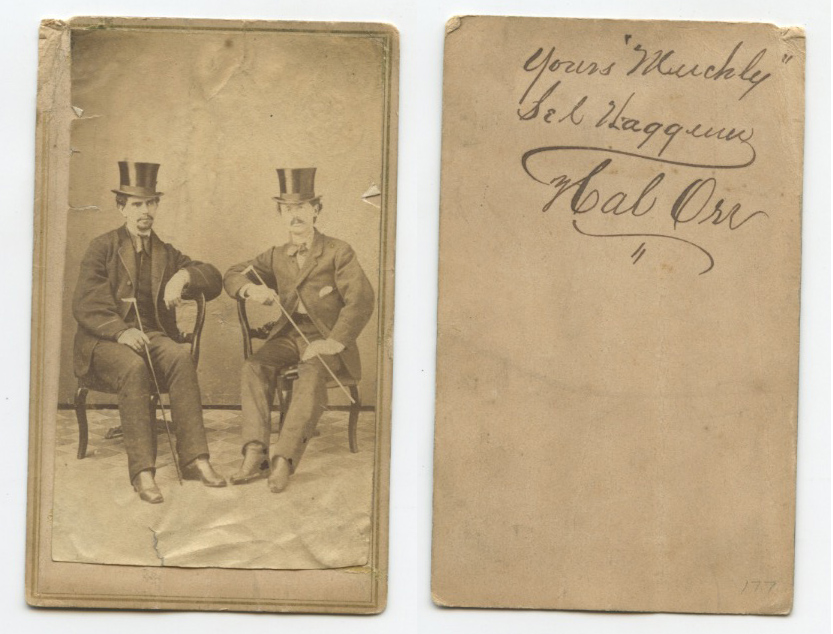 Yours "Muchly"
Sel Haggerty
Hal Orr
"
177